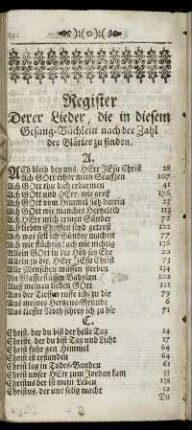 Register
Derer Lieder, die in diesem
Gesang-Büchlein nach der Zahl
der Blätter zu finden.
A.
ACh bleib bey uns, HErr JEsu Christ 28
Ach GOtt erhör mein Seufzen 107
Ach GOtt thu dich erbarmen 41
Ach GOtt und HErr, wie groß
Ach GOtt vom Himmel sieh darein 23
Ach GOtt wie manches Hertzeleid 113
Ach HErr mich armen Sünder 72
Ach lieben Christen seyd getrost 122
Ach was soll ich Sünder machen 77
Ach wie flüchtig! ach wie nichtig 136
Allein GOtt in der Höh sey Ehr 20
Allein zu dir, HErr JEsu Christ 73
Alle Menschen müssen sterben 134
Als JEsus
Auf meinen lieben GOtt 121
Aus der Tieffen ruffe ich zu dir 79
Aus meines Hertzens-Grunde 6
Aus tieffer Noth schrey ich zu dir 71
C.
Christ, der du bist der helle Tag 14
Christe, der du bist Tag und Licht 17
Christ fuhr gen Himmel 64
Christ ist erstanden 64
Christ lag in Todes-Banden 61
Christ unser HErr zum Jordan kam
Christus der ist mein Leben 138
Christus, der uns selig macht 52